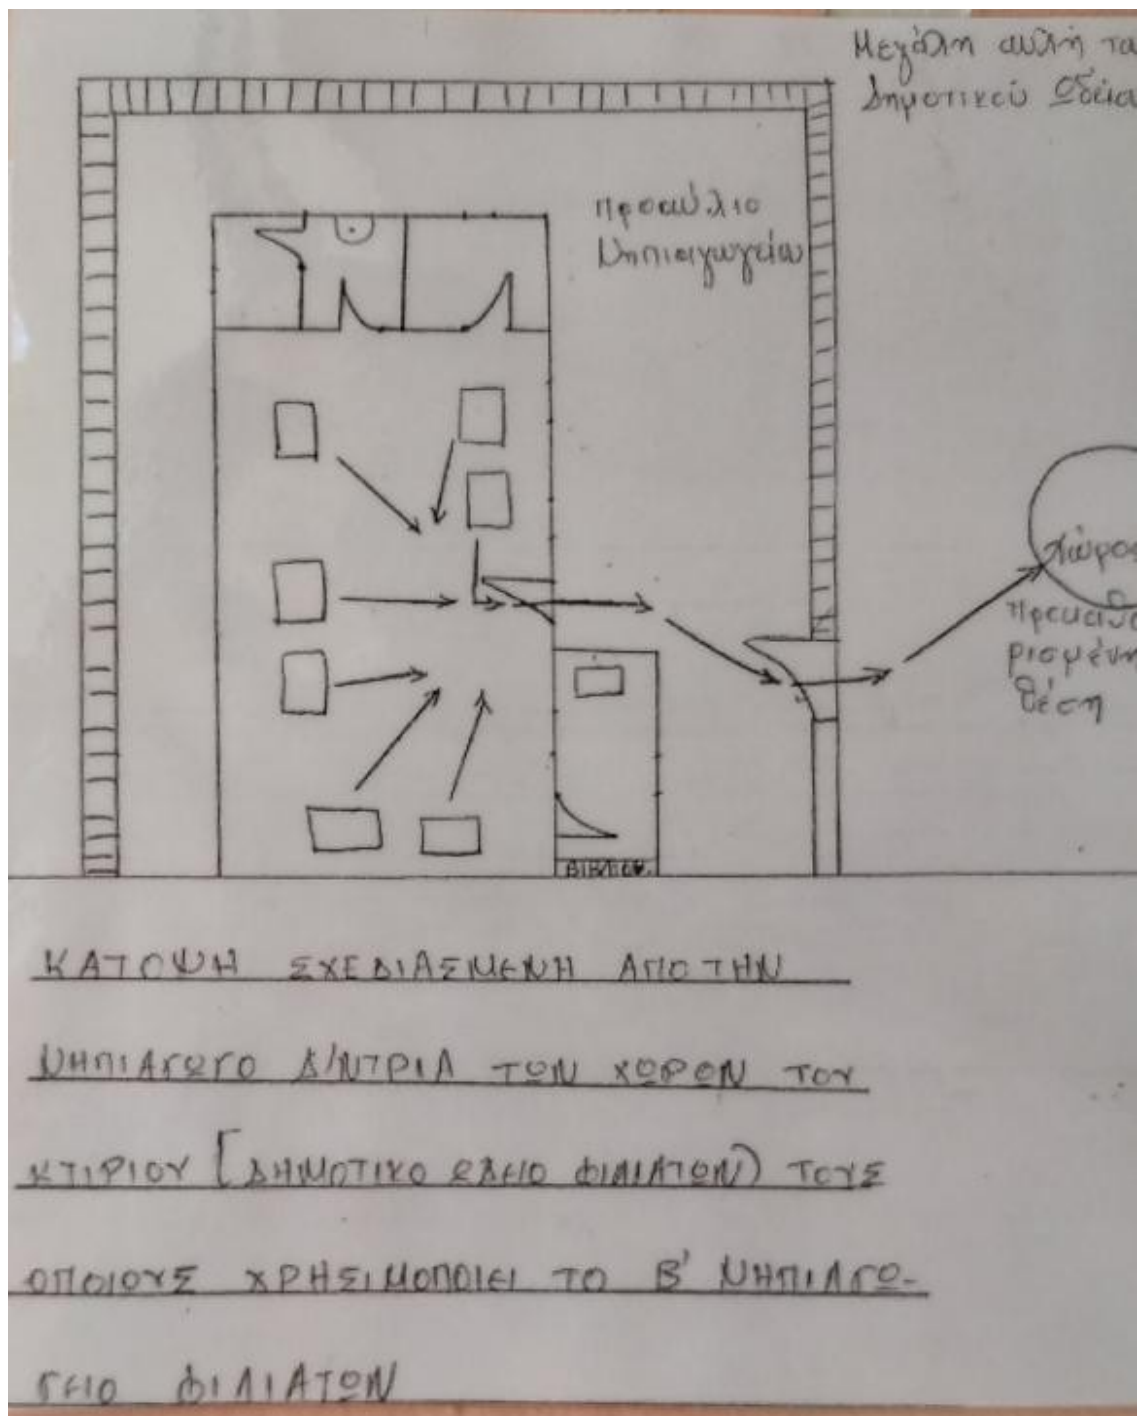 Μεγάλη αυλή
Δημοτικού Ωδεία
Προαύλιο
Νηπιαγωγείου
Χώρος
Προκαθο
ρισμένη
θέση
ΒΙΒΛΙΟΘ.
ΚΑΤΟΨΗ ΣΧΕΔΙΑΣΜΕΝΗ ΑΠΟ ΤΗΝ
ΝΗΠΙΑΓΩΓΟ Δ/ΝΤΡΙΑ ΤΩΝ ΧΩΡΩΝ ΤΟΥ
ΚΤΙΡΙΟΥ [ΔΗΜΟΤΙΚΟ ΩΔΕΙΟ ΦΙΛΙΑΤΩΝ) ΤΟΥΣ
ΟΠΟΙΟΥΣ ΧΡΗΣΙΜΟΠΟΙΕΙ ΤΟ Β' ΝΗΠΙΑΓΩ-
ΓΕΙΟ ΦΙΛΙΑΤΩΝ